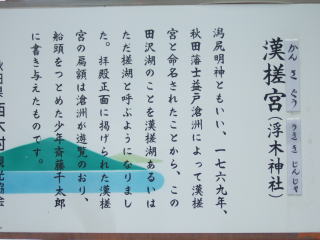 漢槎宮(浮木神社)
かんさぐう
うききじんじゃ
潟尻明神ともいい、一七六九年、
秋田藩士益戸滄洲によって漢槎
宮と命名されたことから、この
田沢湖のことを漢槎湖あるいは
ただ槎湖と呼ぶようになりまし
た。拝殿正面に掲げられた漢槎
宮の扁額は滄洲が遊覧のおり、
船頭をつとめた少年斉藤千太郎
に書き与えたものです。
秋田県西木村観光協会